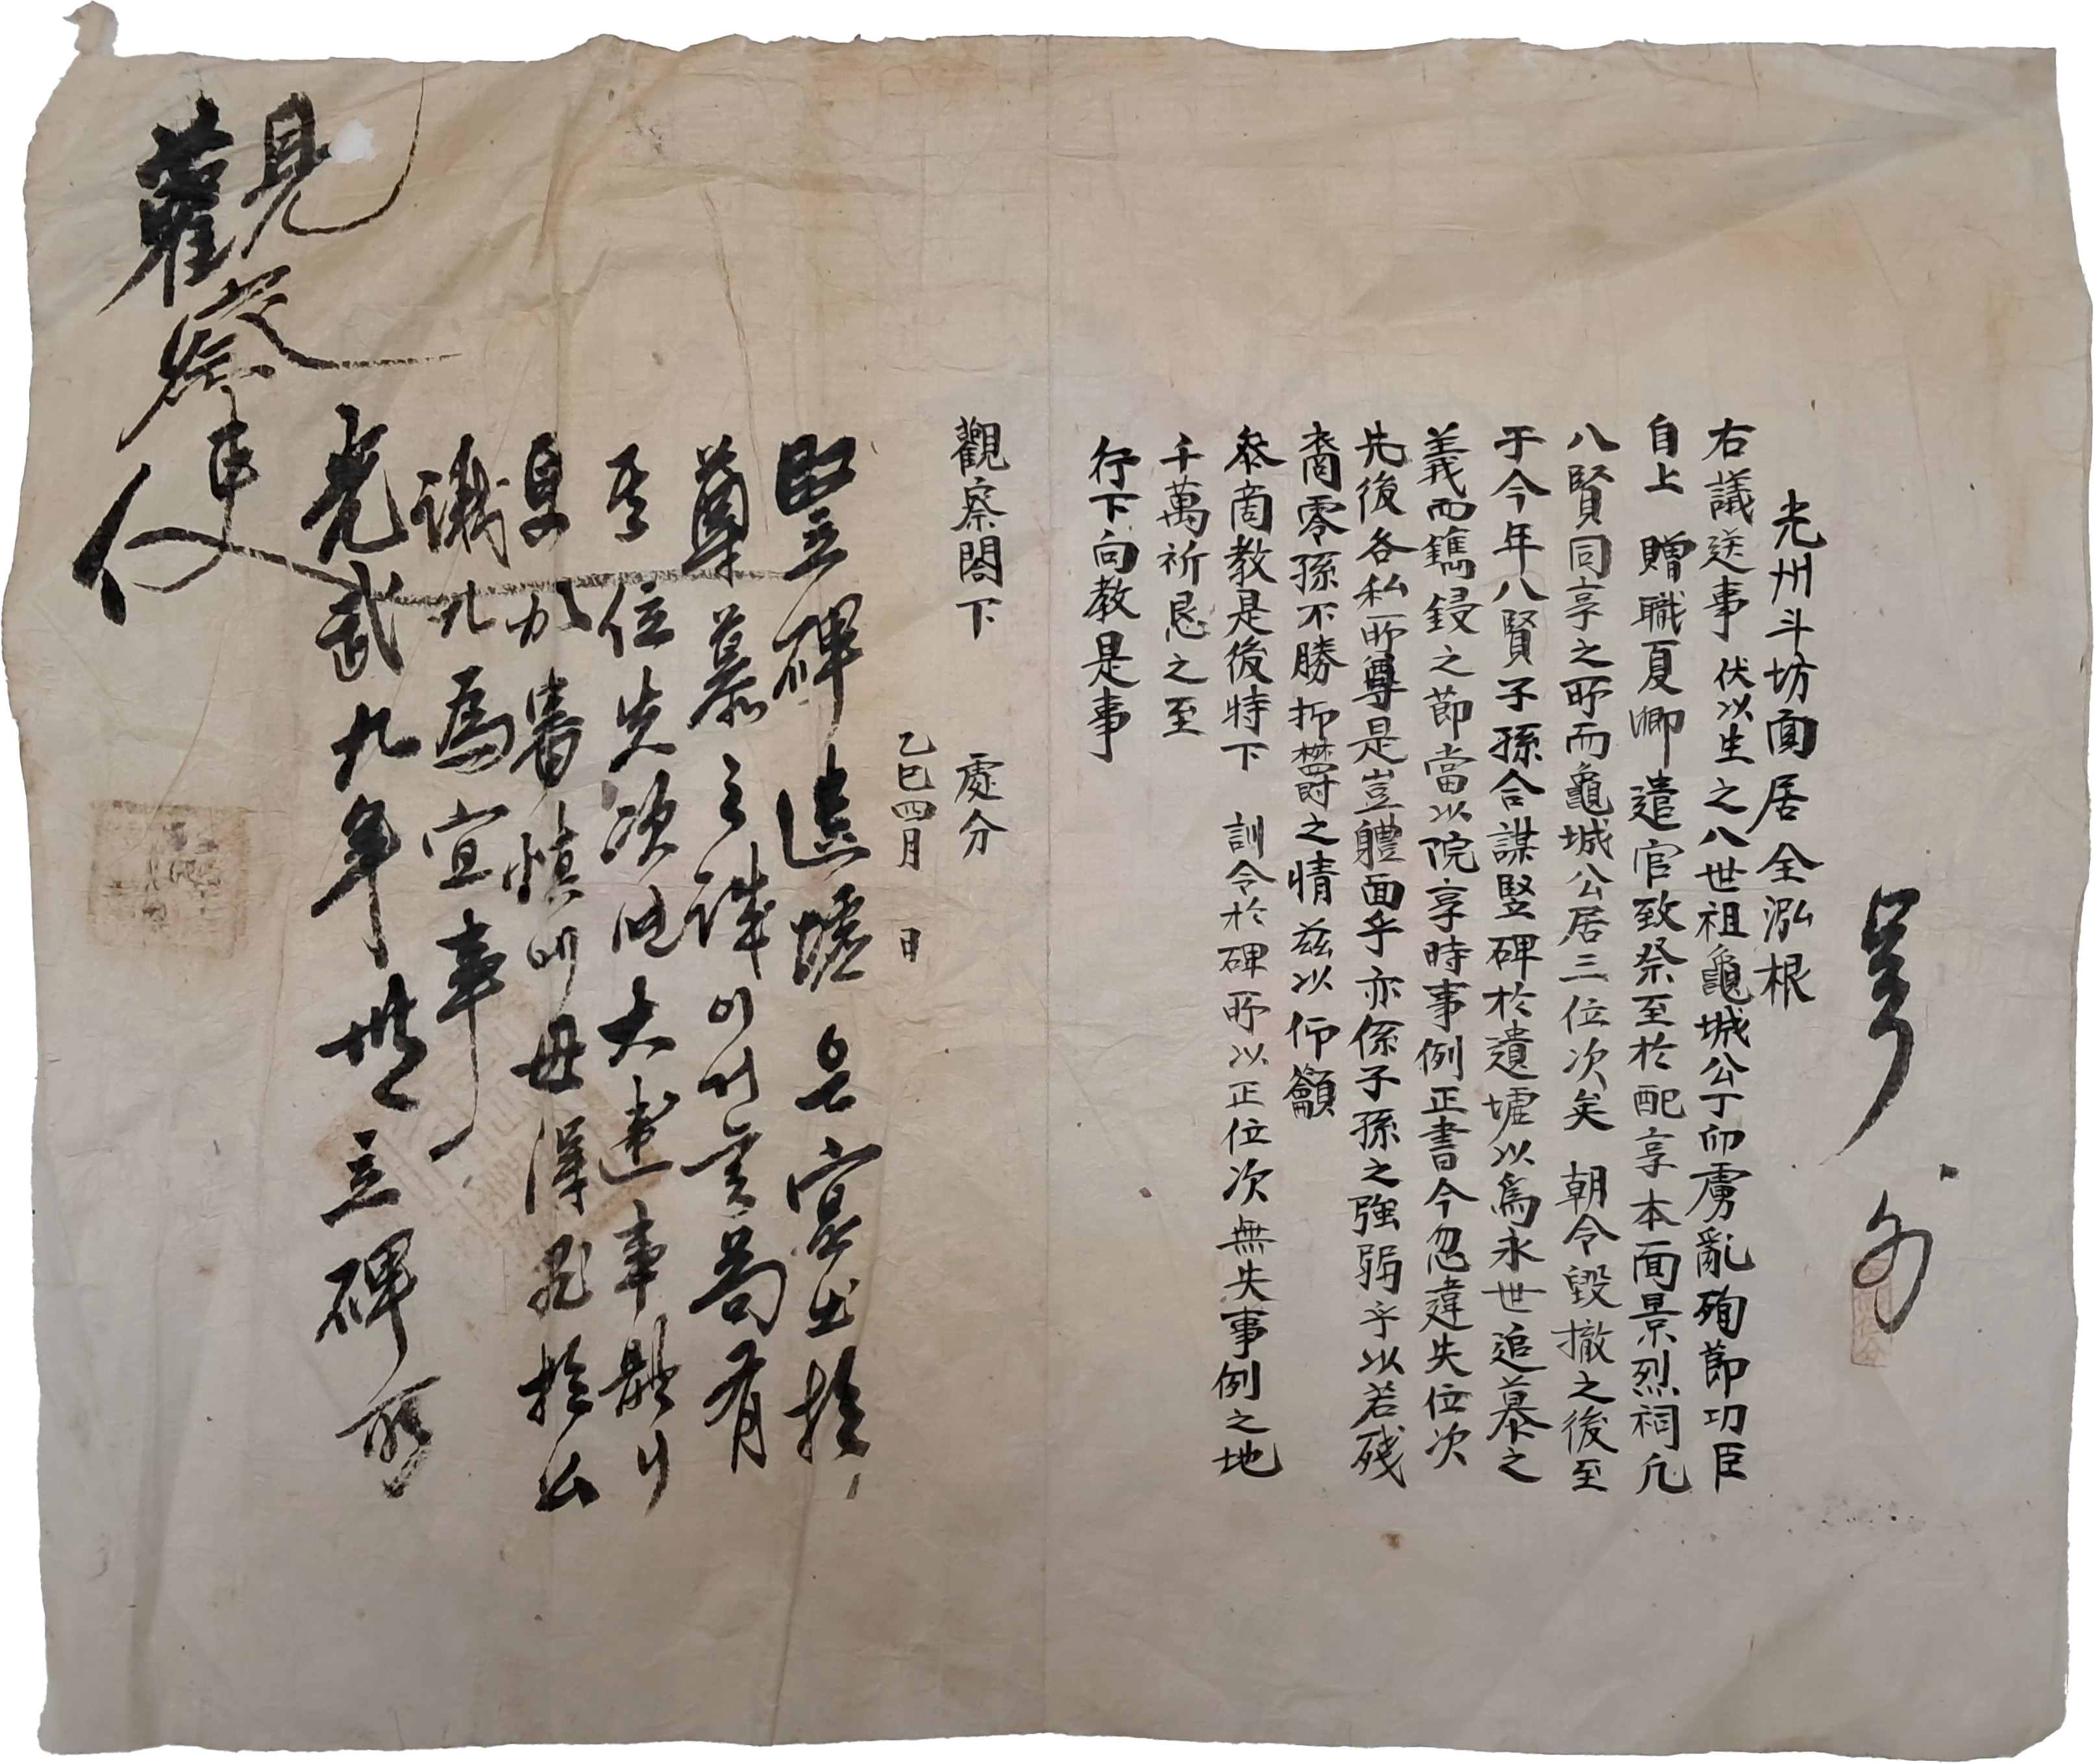 光州斗坊面居全泓根
右議送事伏以生之八世祖龜城公丁卯虜亂殉節功臣
自上 贈職夏卿 遣官致祭至於配享本面景烈祠凡
八賢同享之所而龜城公居三位次矣 朝令毀撤之後至
于今年八賢子孫合謀竪碑於遺墟以爲永世追慕之
義而鐫鋟之節當以院享時事例正書今忽違失位次
先後各私所尊是豈軆面乎亦係子孫之強弱乎以若殘
裔零孫不勝抑欝之情玆以仰籲
叅商敎是後特下 訓令於碑所以正位次無失事例之地
千萬祈恳之至
行下向敎是事
觀察閤下 處分
乙巳四月 日
竪碑遺墟 寔出於
尊慕之誠이거 苟有
位先次 大違事軆니
更加審愼야 毋得 於公
議 爲宜事
光武九年 立碑所
觀察使